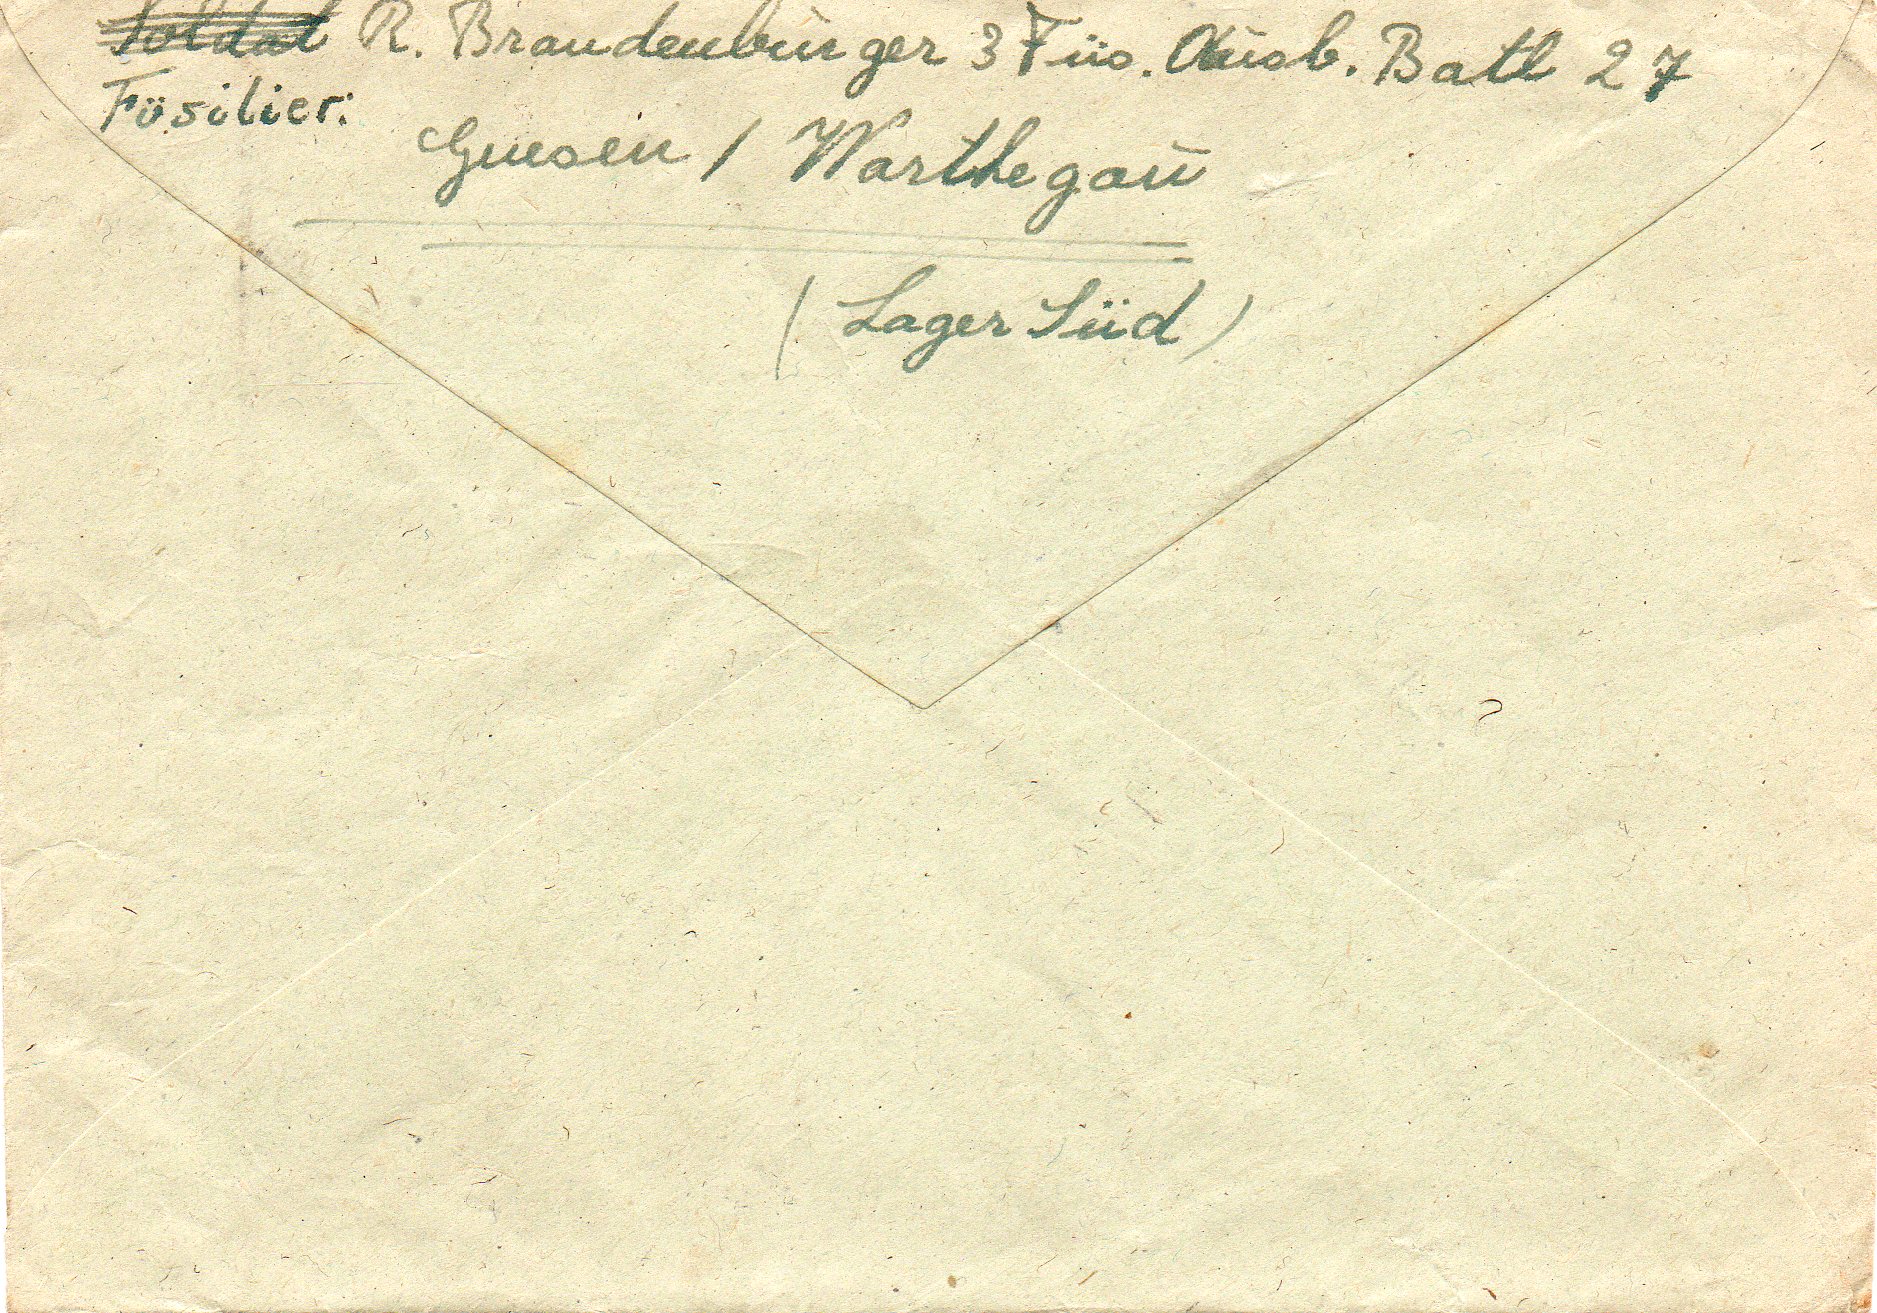 Soldat R. Brandenburger 3 Füs. Ausb. Batl 27
Füsilier:
Gnesen / Warthegau
( Lager Süd )